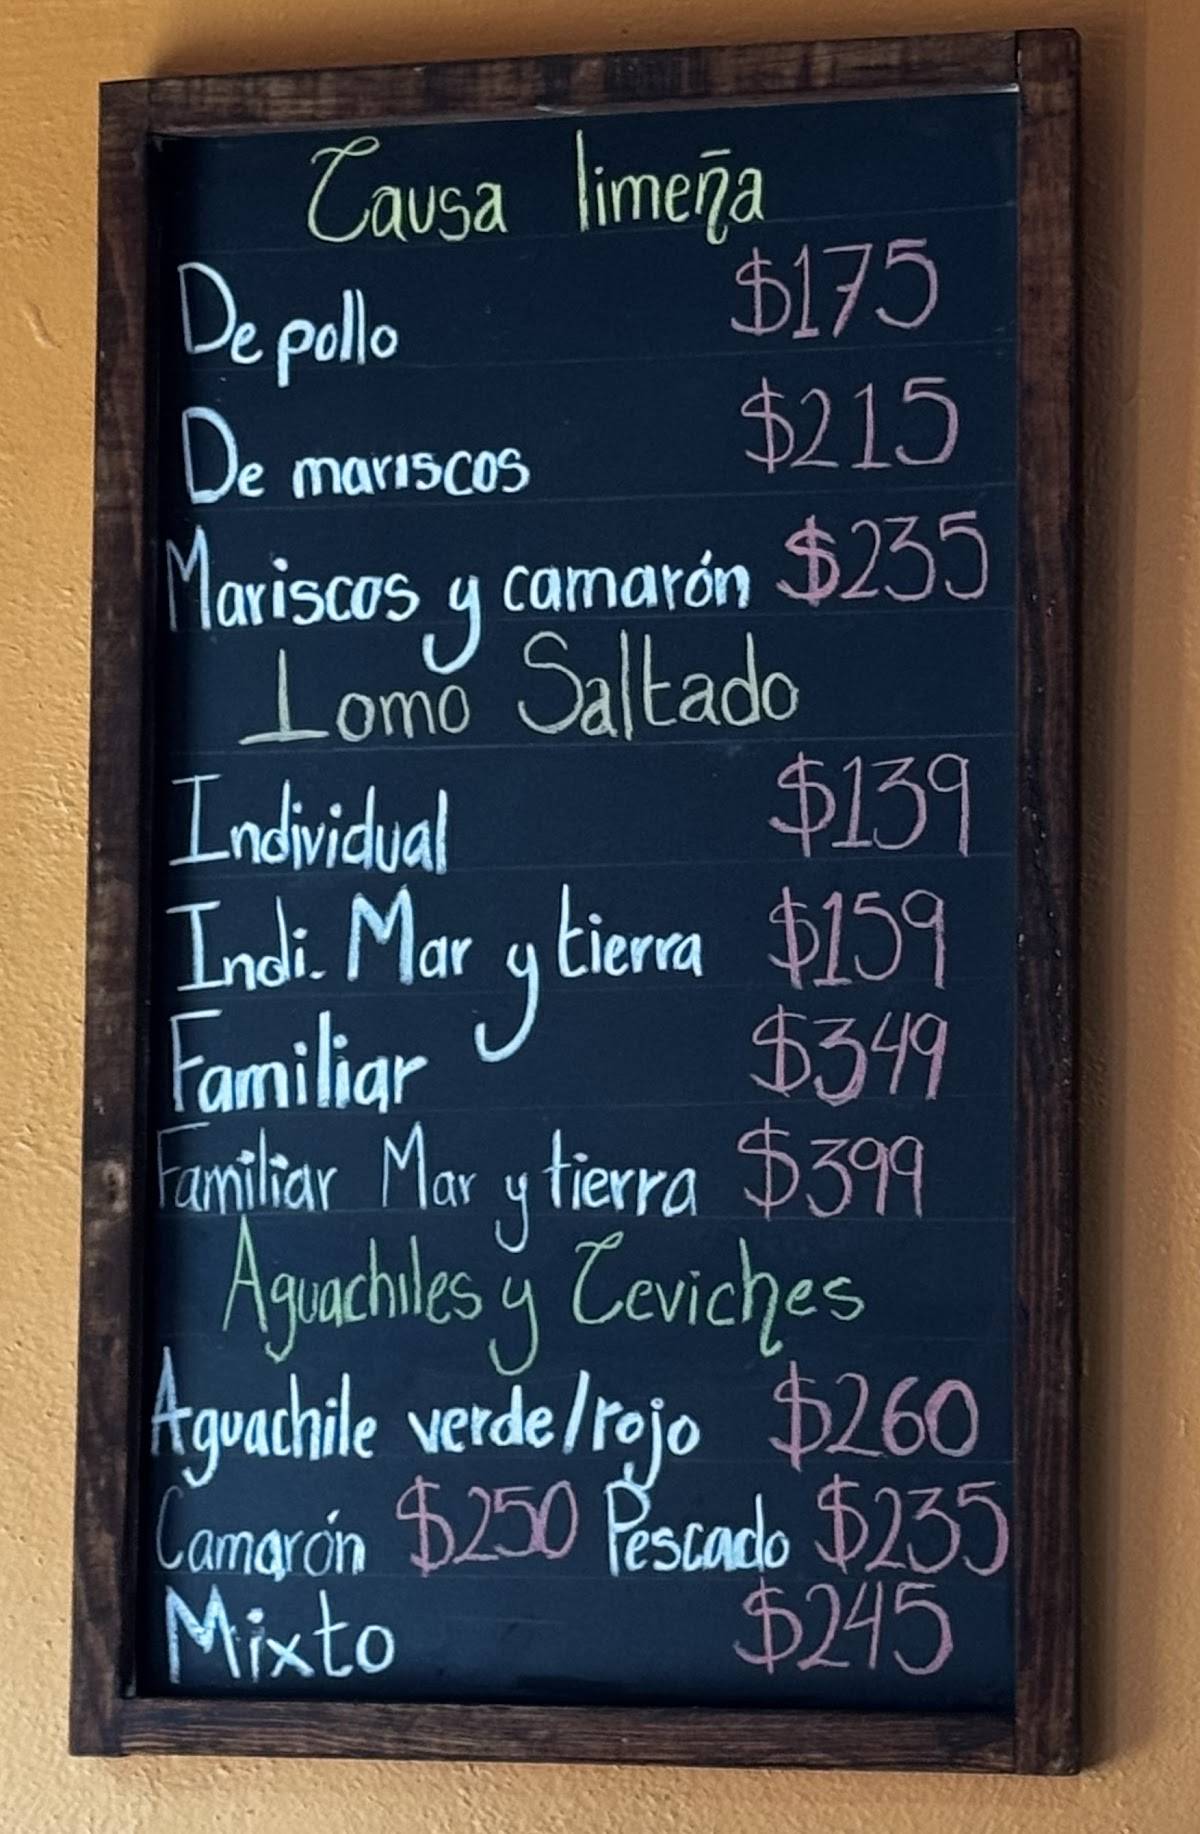 Causa limeña
De pollo $175
De mariscos $215
Mariscos y camarón $235
Lomo Saltado
Individual $139
Indi. Mar y tierra $159
Familiar $349
Familiar Mar y tierra $399
Aguachiles y Ceviches
Aguachile verde/rojo $260
Camarón $250 Pescado $235
Mixto $245